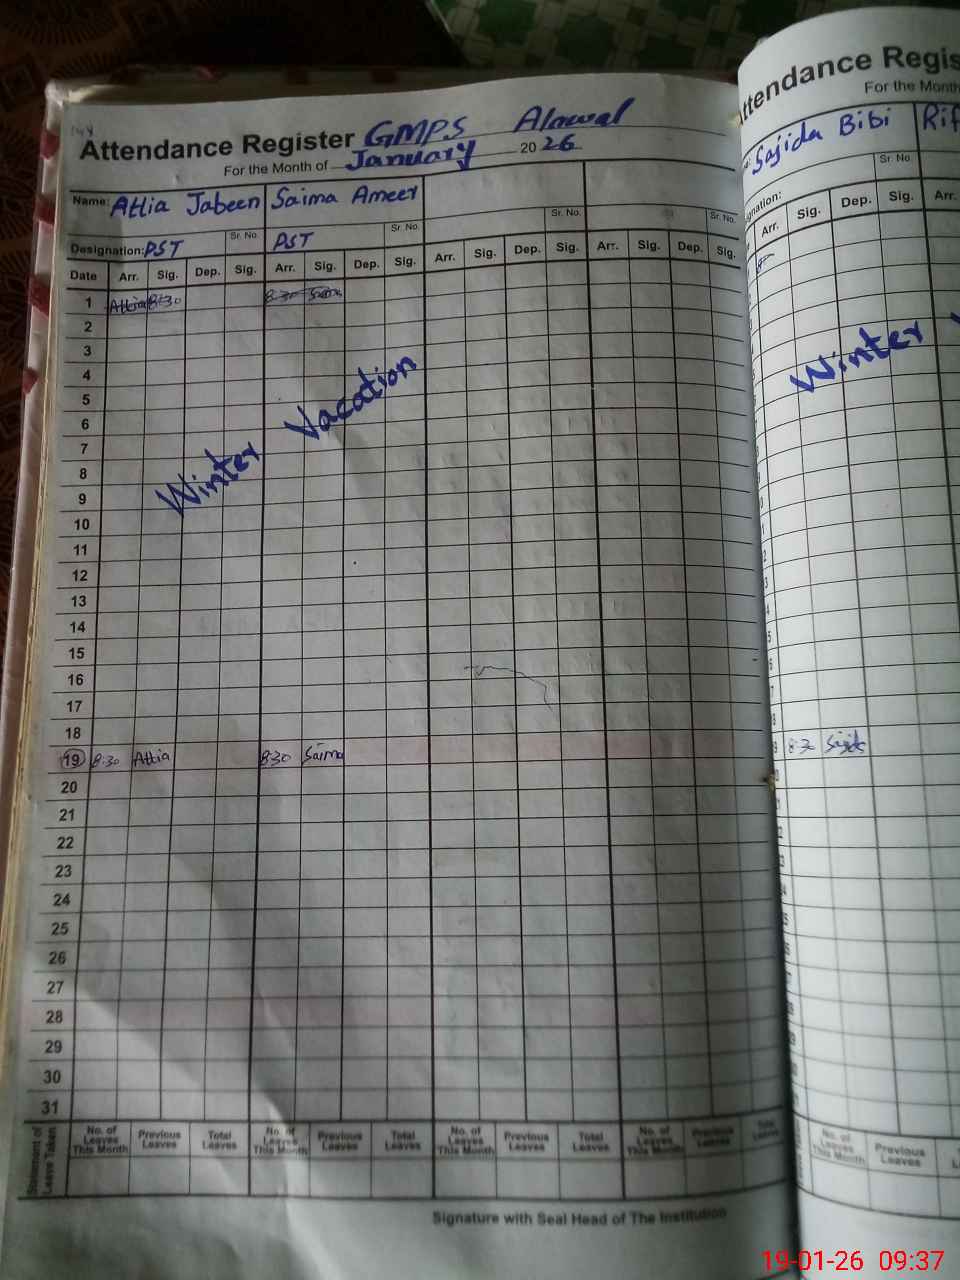 148
Attendance Register GMPS Alawal
For the Month of January 2026
Name: Attia Jabeen Saima Ameer
Sr. No. Sr. No. Sr. No. Sr. No.
Designation: PST PST
Date Arr. Sig. Dep. Sig. Arr. Sig. Dep. Sig. Arr. Sig. Dep. Sig. Arr. Sig. Dep. Sig.
1 Attia 8:30 8:30 Saima
2
3
4
5
6
7
8
9
10
11
12
13
14
15
16
17
18
19 8:30 Attia 8:30 Saima
20
21
22
23
24
25
26
27
28
29
30
31
Winter Vacation
Statement of Leave Taken
No. of Leaves This Month Previous Leaves Total Leaves No. of Leaves This Month Previous Leaves Total Leaves No. of Leaves This Month Previous Leaves Total Leaves No. of Leaves This Month Previous Leaves Total Leaves
Signature with Seal Head of The Institution
ttendance Regis
For the Month
Sajida Bibi Rif
Sr. No.
gnation:
Arr. Sig. Dep. Sig. Arr.
Winter
8:30 Sajida
No. of Leaves This Month Previous Leaves
19-01-26 09:37